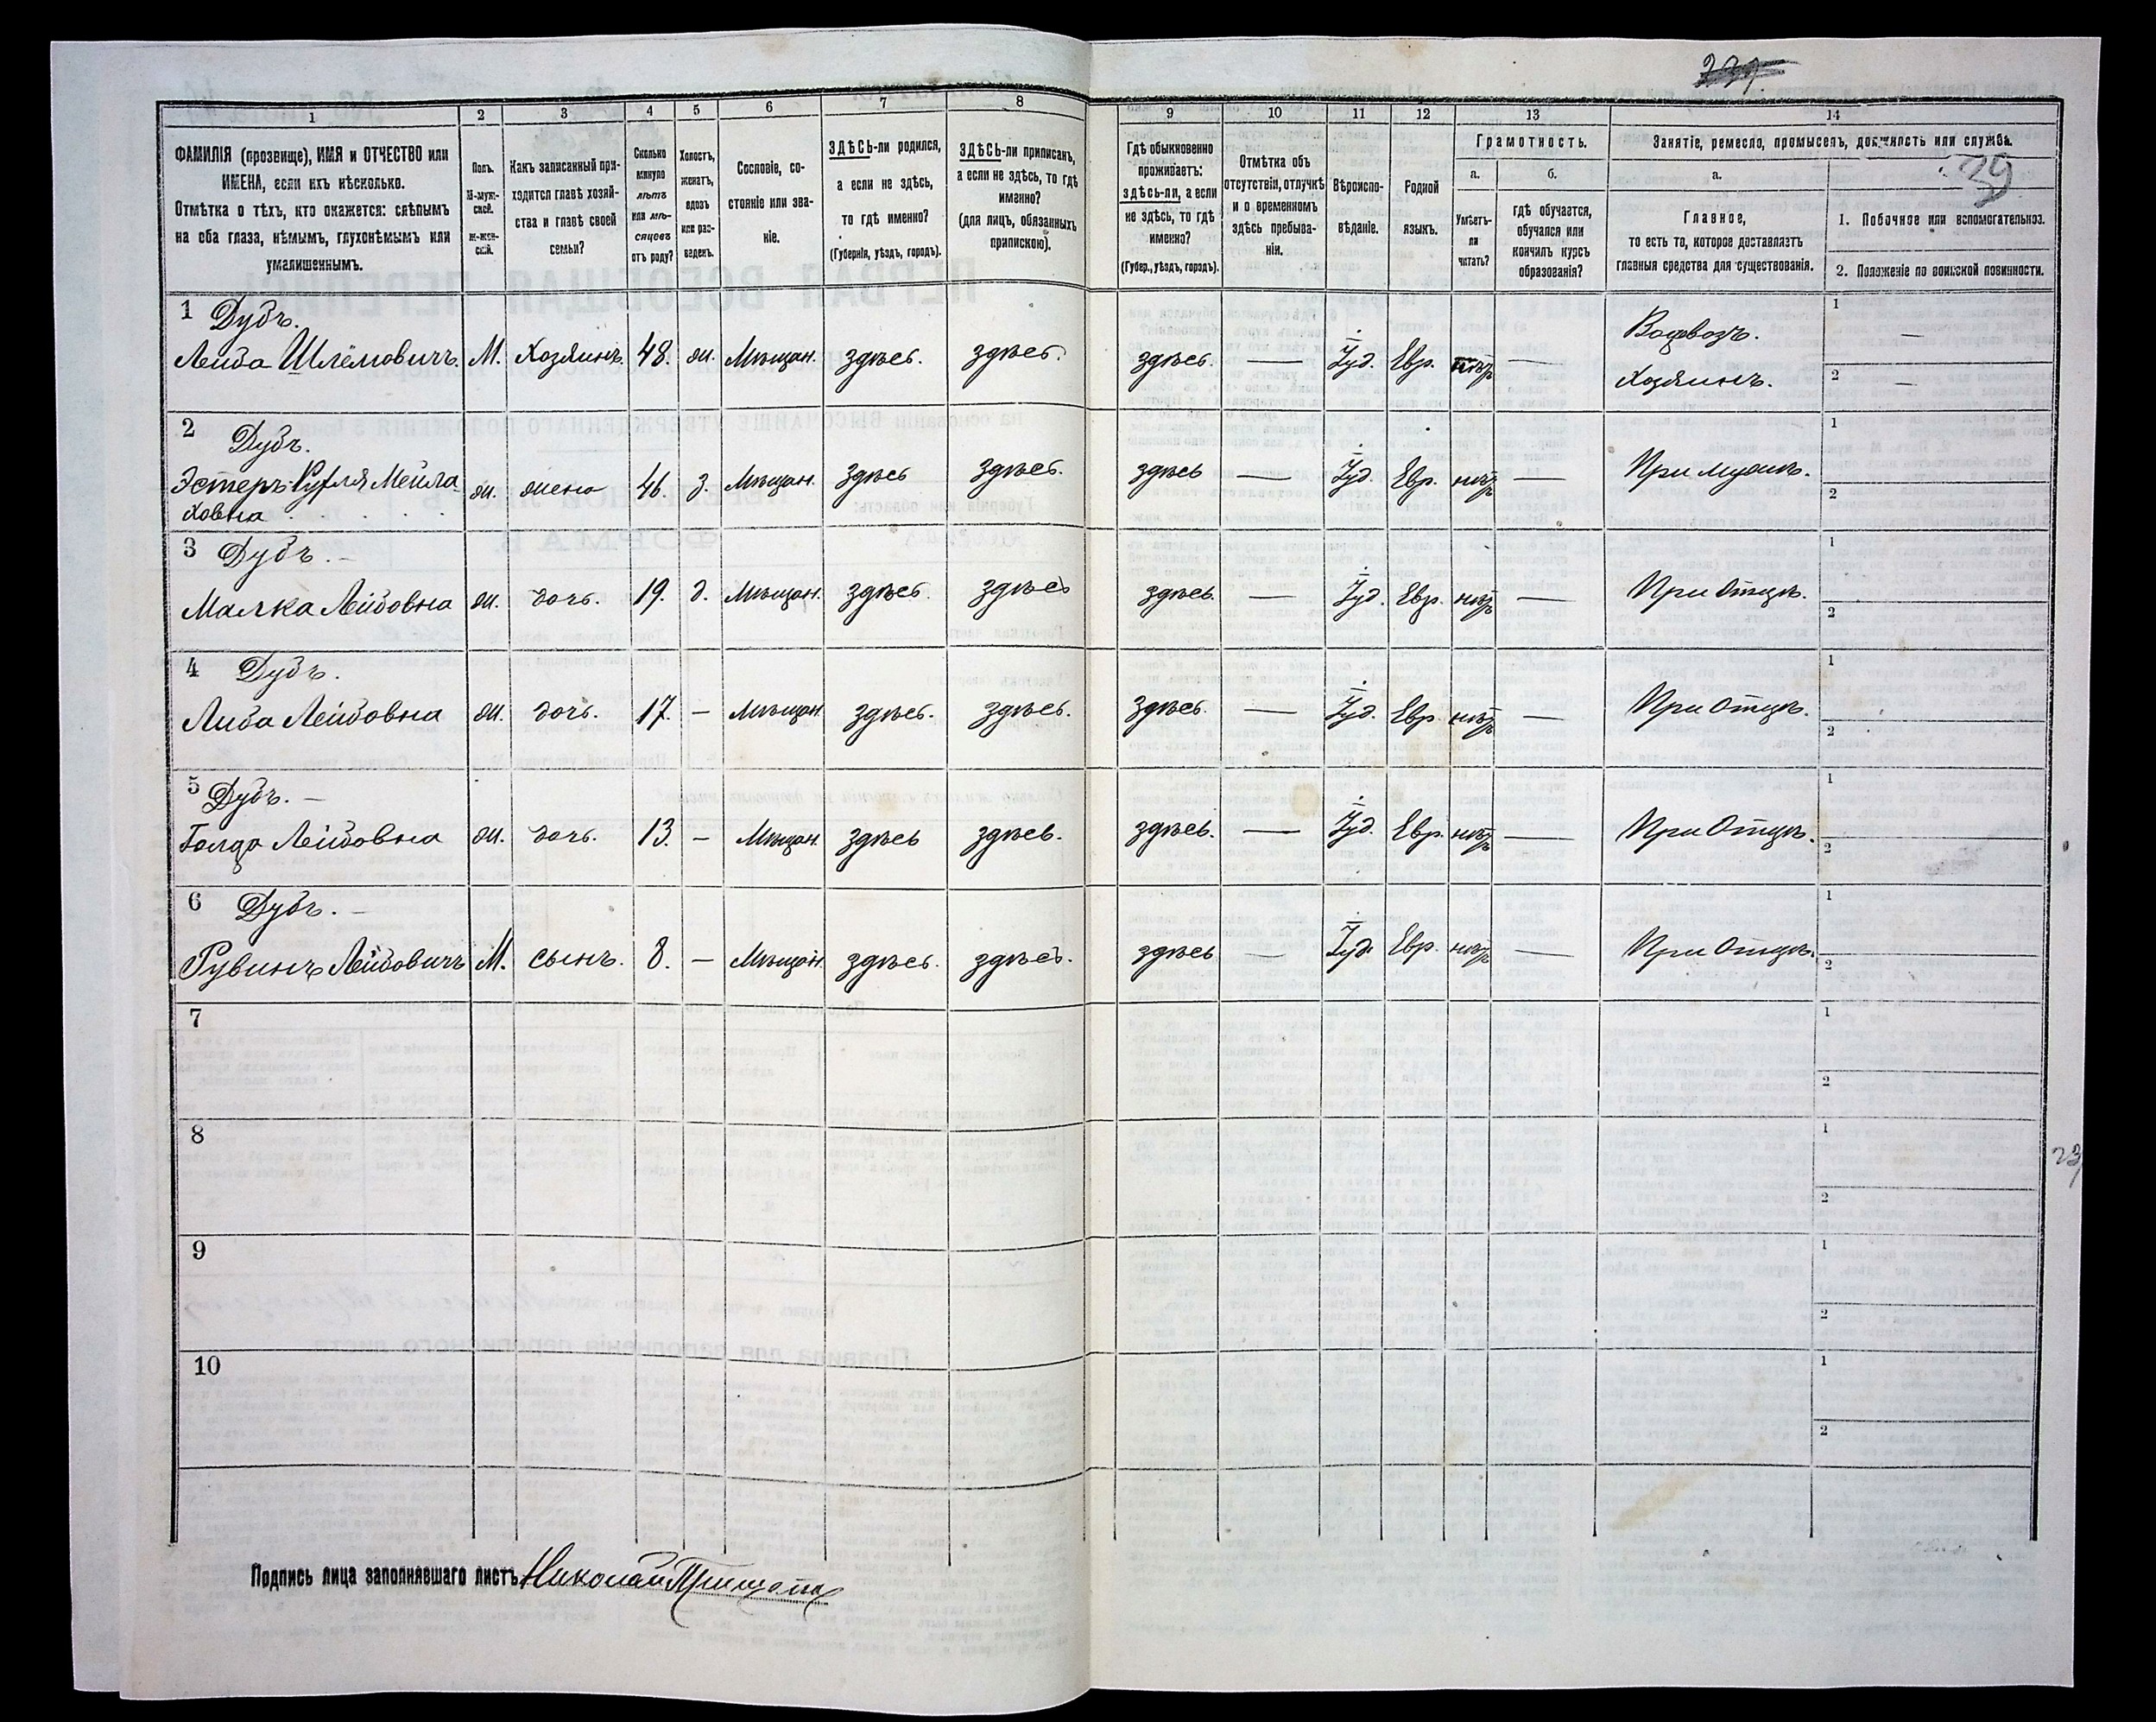 239.
39
1
2
3
4
5
6
7
8
9
10
11
12
13
14
ФАМИЛІЯ (прозвище), ИМЯ и ОТЧЕСТВО или
ИМЕНА, если ихъ нѣсколько.
Отмѣтка о тѣхъ, кто окажется: слѣпымъ
на оба глаза, нѣмымъ, глухонѣмымъ или
умалишеннымъ.
Полъ.
М-муж-
ской.
Ж-жен-
скій.
Какъ записанный при-
ходится главѣ хозяй-
ства и главѣ своей
семьи?
Сколько
минуло
лѣтъ
или мѣ-
сяцевъ
отъ роду?
Холостъ,
женатъ,
вдовъ
или раз-
веденъ.
Сословіе, со-
стояніе или зва-
ніе.
ЗДѢСЬ-ли родился,
а если не здѣсь,
то гдѣ именно?
(Губернія, уѣздъ, городъ).
ЗДѢСЬ-ли приписанъ,
а если не здѣсь, то гдѣ
именно?
(для лицъ, обязанныхъ
припискою).
Гдѣ обыкновенно
проживаетъ:
здѣсь-ли, а если
не здѣсь, то гдѣ
именно?
(Губер., уѣздъ, городъ).
Отмѣтка объ
отсутствіи, отлучкѣ
и о временномъ
здѣсь пребыва-
ніи.
Вѣроиспо-
вѣданіе.
Родной
языкъ.
Грамотность.
а.
Умѣетъ-
ли
читать?
б.
гдѣ обучается,
обучался или
кончилъ курсъ
образованія?
Занятіе, ремесло, промыселъ, должность или служба.
а.
Главное,
то есть то, которое доставляетъ
главныя средства для существованія.
1. Побочное или вспомогательное.
2. Положеніе по воинской повинности.
1 Дубъ.
Лейба Шлёмовичъ. М. Хозяинъ. 48. ж. Мѣщан. здѣсь. здѣсь. здѣсь. — Іуд. Евр. нѣтъ — Водовозъ. 1 —
Хозяинъ. 2 —
2 Дубъ.
Эстеръ-Мейла-
ховна ж. жена 46. з. Мѣщан. здѣсь здѣсь. здѣсь — Іуд. Евр. нѣтъ — При мужѣ. 1
2
3 Дубъ. —
Малка Лейбовна ж. дочь. 19. д. Мѣщан. здѣсь. здѣсь здѣсь. — Іуд. Евр. нѣтъ — При Отцѣ. 1
2
4 Дубъ.
Либа Лейбовна ж. дочь. 17. — Мѣщан здѣсь. здѣсь. здѣсь. — Іуд. Евр. нѣтъ — При Отцѣ. 1
2
5 Дубъ. —
Голда Лейбовна ж. дочь. 13. — Мѣщан. здѣсь здѣсь. здѣсь. — Іуд. Евр. нѣтъ — При Отцѣ. 1
2
6 Дубъ. —
Рувинъ Лейбовичъ М. сынъ. 8. — Мѣщан здѣсь. здѣсь. здѣсь — Іуд. Евр. нѣтъ — При Отцѣ. 1
2
7 1
2
8 1
23
2
9 1
2
10 1
2
Подпись лица заполнявшаго листъ Николай